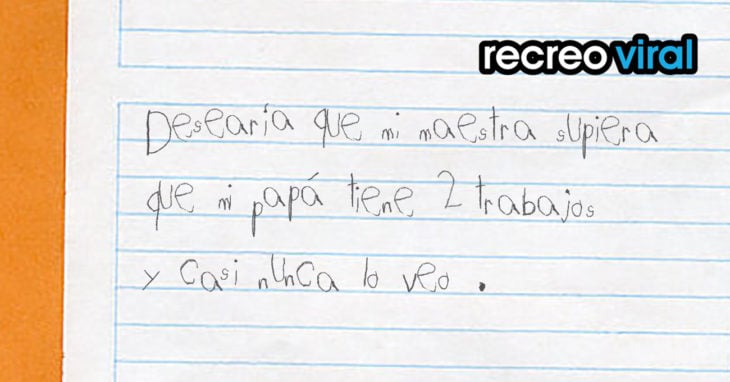 recreoviral
Desearía que mi maestra supiera
que mi papá tiene 2 trabajos
y casi nunca lo veo.